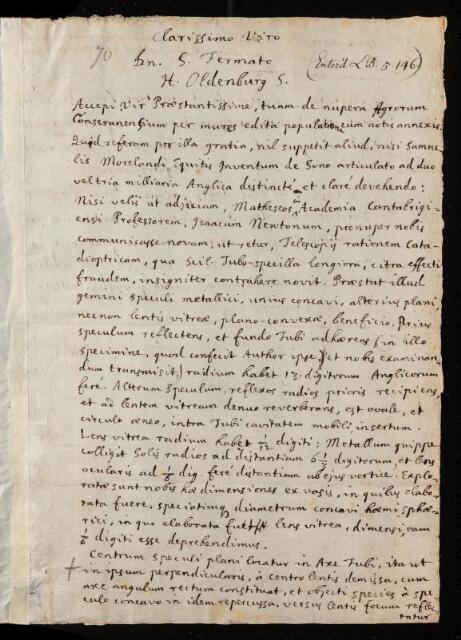 Clarissimo Viro
70
Dn. S. Fermato (Enterd L.B. 5. 146)
H. Oldenburg S.
Accepi Vir Præstantissime, tuam de nupera Agrorum
Conseranensium per mures edita populatione, cum notis annexis.
Quod referam pro illa gratia, nil suppetit aliud, nisi Samue-
lis Morelandi, Equitis Inventum de Sono articulato ad duo
vel tria milliaria Anglica distincte et claré devehendo:
Nisi velis ut adjiciam, Matheseos in Academia Cantabrigi-
ensi Professorem, Isaacum Newtonum, pronuper nobis
communicasse novam, ut retur, Telescopij rationem Cata-
dioptricam, qua scil. Tubo-specilla longiora, citra effecti
fraudem, insigniter contrahere novit. Præstat illud
gemini speculi metallici, unius concavi, alterius plani,
necnon lentis vitreæ, plano-convexæ, beneficio. Prius
speculum reflectens, et fundo Tubi adhærens (in illo
specimine, quod confecit Author ipse, et nobis examinan-
dum transmisit) radium habet 13. digitorum Anglicorum
feré. Alterum speculum, reflexos radios prioris recipiens,
et ad lentem vitream denuo reverberans, est ovale, et
circulo æneo, intra Tubi cavitatem mobili, insertum.
Lens vitrea radium habet 1/12 digiti: Metallum quippe
colligit Solis radios ad distantiam 6 1/3 digitorum, et lens
ocularis ad 1/6 dig. feré distantiam ab ejus vertice. Explo-
ratæ sunt nobis hæ dimensiones ex vasis, in quibus elabo-
rata fuere, speciatimque diametrum concavi hæmisphæ-
rici, in quo elaborata fuit lens vitrea, dimensi, eam
1/6 digiti esse deprehendimus.
Centrum speculi plani locatur in Axe Tubi, ita ut
in ipsum perpendicularis, à centro lentis demissa, cum
axe angulum rectum constituat, et objecti species à spe-
culo concavo in idem repercussa, versus lentis focum refle-
ctatur